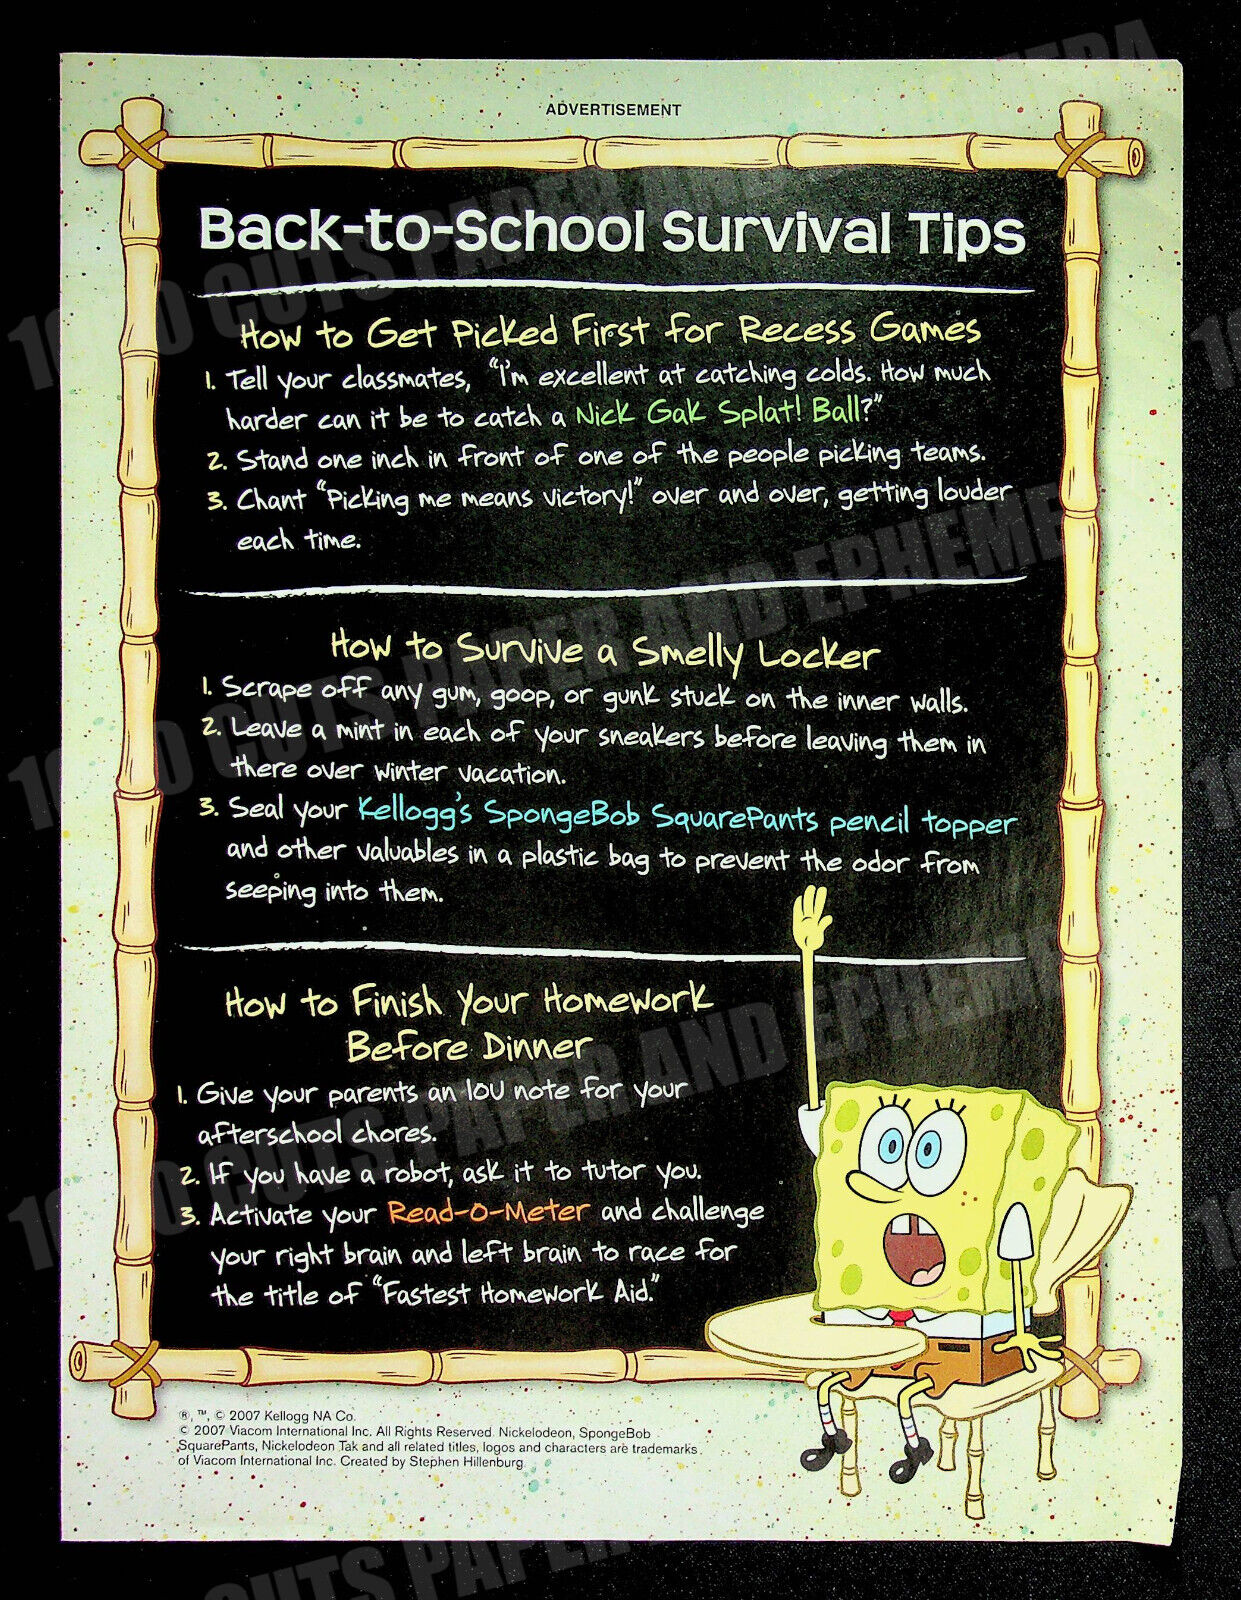 ADVERTISEMENT
Back-to-School Survival Tips
How to Get Picked First for Recess Games
1. Tell your classmates, "I'm excellent at catching colds. How much
harder can it be to catch a Nick Gak Splat! Ball?"
2. Stand one inch in front of one of the people picking teams.
3. Chant "Picking me means victory!" over and over, getting louder
each time.
How to Survive a Smelly Locker
1. Scrape off any gum, goop, or gunk stuck on the inner walls.
2. Leave a mint in each of your sneakers before leaving them in
there over winter vacation.
3. Seal your Kellogg's SpongeBob SquarePants pencil topper
and other valuables in a plastic bag to prevent the odor from
seeping into them.
How to Finish Your Homework
Before Dinner
1. Give your parents an IOU note for your
afterschool chores.
2. If you have a robot, ask it to tutor you.
3. Activate your Read-O-Meter and challenge
your right brain and left brain to race for
the title of "Fastest Homework Aid."
®, ™, © 2007 Kellogg NA Co.
© 2007 Viacom International Inc. All Rights Reserved. Nickelodeon, SpongeBob
SquarePants, Nickelodeon Tak and all related titles, logos and characters are trademarks
of Viacom International Inc. Created by Stephen Hillenburg.
CUTS PAPER AND EPHEMERA
CUTS PAPER AND EPHEMERA
CUTS PAPER AND EPHEMERA
CUTS PAPER AND EPHEMERA